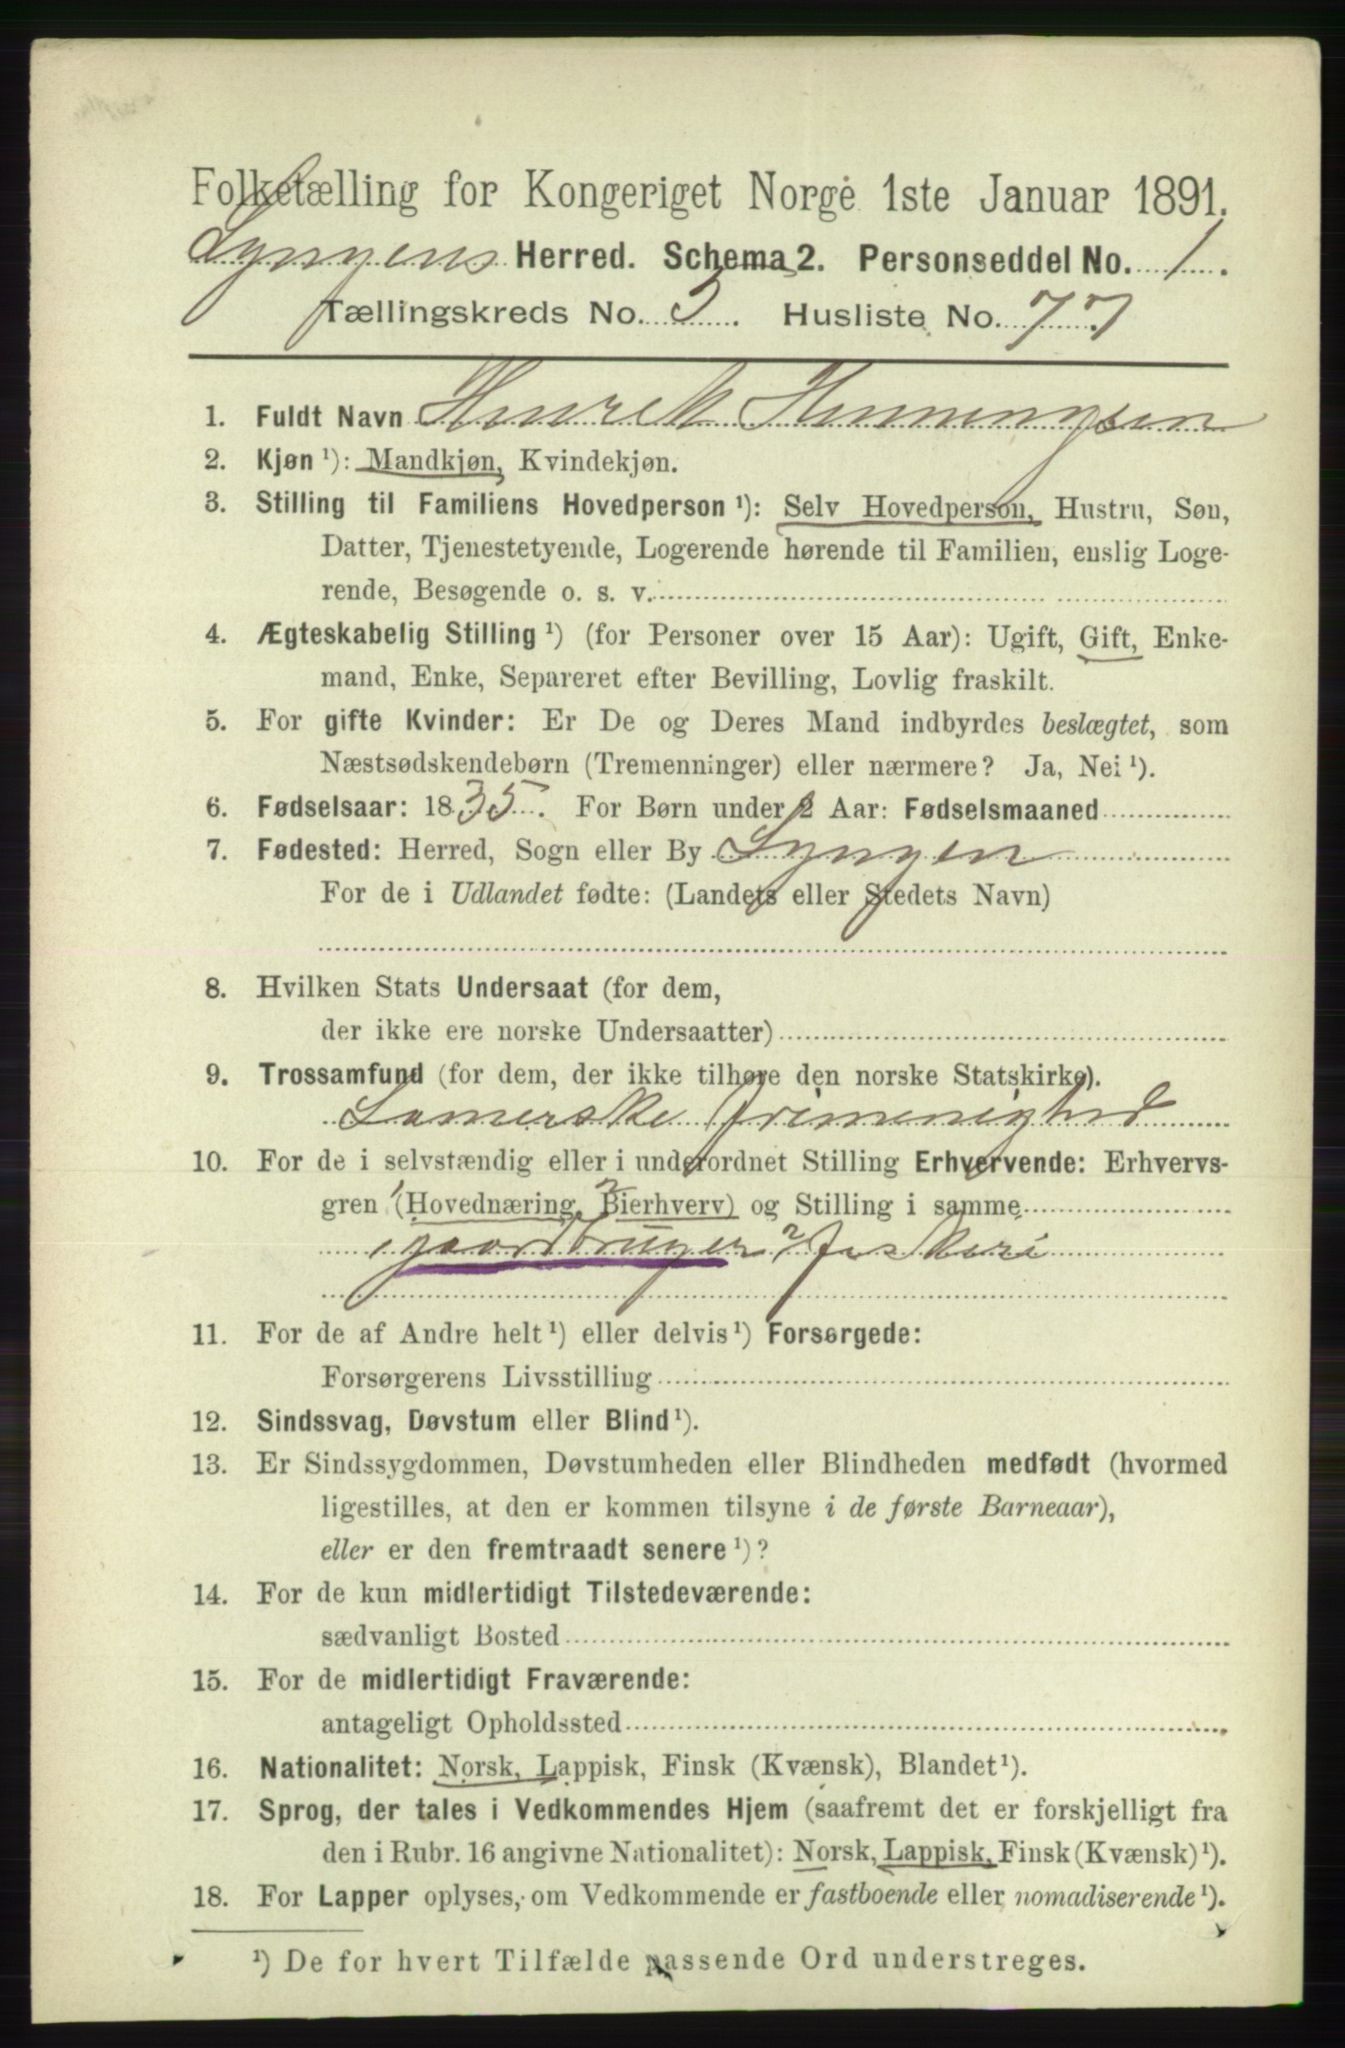 Folketælling for Kongeriget Norge 1ste Januar 1891.
Lyngens Herred. Schema 2. Personseddel No. 1.
Tællingskreds No. 3. Husliste No. 77
1. Fuldt Navn Henrik Henningsen
2. Kjøn ¹): Mandkjøn, Kvindekjøn.
3. Stilling til Familiens Hovedperson ¹): Selv Hovedperson, Hustru, Søn,
Datter, Tjenestetyende, Logerende hørende til Familien, enslig Loge-
rende, Besøgende o. s. v.
4. Ægteskabelig Stilling ¹) (for Personer over 15 Aar): Ugift, Gift, Enke-
mand, Enke, Separeret efter Bevilling, Lovlig fraskilt.
5. For gifte Kvinder: Er De og Deres Mand indbyrdes beslægtet, som
Næstsødskendebørn (Tremenninger) eller nærmere? Ja, Nei ¹).
6. Fødselsaar: 1835. For Børn under 2 Aar: Fødselsmaaned
7. Fødested: Herred, Sogn eller By Lyngen
For de i Udlandet fødte: (Landets eller Stedets Navn)
8. Hvilken Stats Undersaat (for dem,
der ikke ere norske Undersaatter)
9. Trossamfund (for dem, der ikke tilhøre den norske Statskirke).
10. For de i selvstændig eller i underordnet Stilling Erhvervende: Erhvervs-
gren ¹(Hovednæring, ²Bierhverv) og Stilling i samme
¹ gaardbruger ² fiskeri
11. For de af Andre helt ¹) eller delvis ¹) Forsørgede:
Forsørgerens Livsstilling
12. Sindssvag, Døvstum eller Blind ¹).
13. Er Sindssygdommen, Døvstumheden eller Blindheden medfødt (hvormed
ligestilles, at den er kommen tilsyne i de første Barneaar),
eller er den fremtraadt senere ¹)?
14. For de kun midlertidigt Tilstedeværende:
sædvanligt Bosted
15. For de midlertidigt Fraværende:
antageligt Opholdssted
16. Nationalitet: Norsk, Lappisk, Finsk (Kvænsk), Blandet ¹).
17. Sprog, der tales i Vedkommendes Hjem (saafremt det er forskjelligt fra
den i Rubr. 16 angivne Nationalitet): Norsk, Lappisk, Finsk (Kvænsk) ¹).
18. For Lapper oplyses, om Vedkommende er fastboende eller nomadiserende ¹).
¹) De for hvert Tilfælde passende Ord understreges.